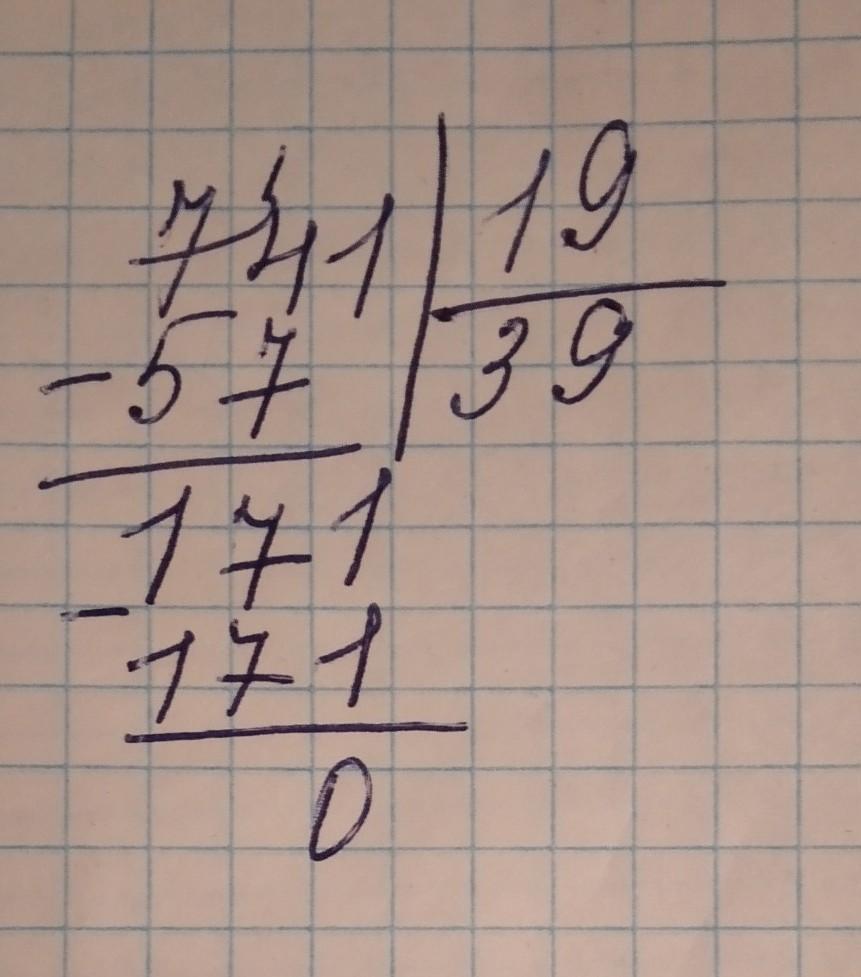 741 | 19
-57 | 39
171
-171
0